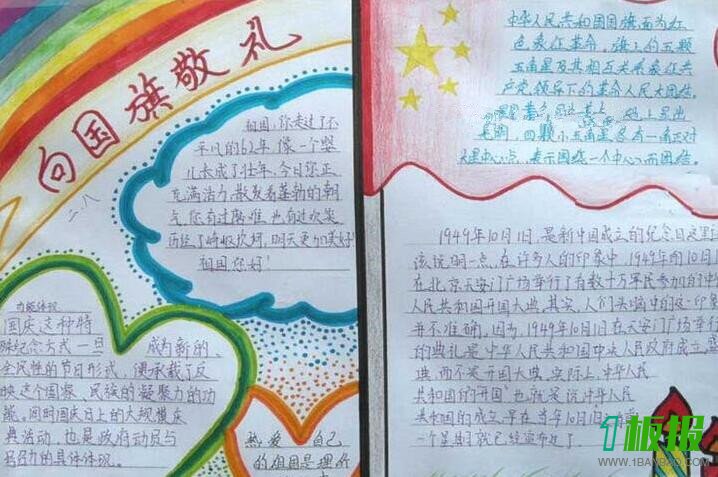 向国旗敬礼
祖国,你走过了不
平凡的62年,像一个婴
儿长成了壮年,今日您正
充满活力,散发着蓬勃的朝
气,您有过磨难,也有过欢笑
历经了崎岖坎坷,明天更加美好!
祖国您好!
功能体现
国庆这种特
殊纪念方式一旦
成为新的、
全民性的节日形式,便承载了反
映这个国家、民族的凝聚力的功
能。同时国庆日上的大规模庆
典活动,也是政府动员与
号召力的具体体现。
热爱自己
的祖国是理所
中华人民共和国国旗面为红
色,象征革命。旗上的五颗
五角星及其相互关系象征共
产党领导下的革命人民大团结。
四颗小五角星各有一角正对
大星中心点,表示围绕一个中心而团结。
1949年10月1日,是新中国成立的纪念日这里
该说明一点,在许多人的印象中,1949年的10月1
在北京天安门广场举行了有数十万军民参加的中
人民共和国开国大典。其实,人们头脑中的这一印象
并不准确。因为,1949年10月1日在天安门广场举行
的典礼是中华人民共和国中央人民政府成立盛
典,而不是开国大典。实际上,中华人民
共和国的"开国",也就是说中华人民
共和国的成立,早在当年10月1日
一个星期就已经宣布过了
1板报
WWW.1BANBAO.COM